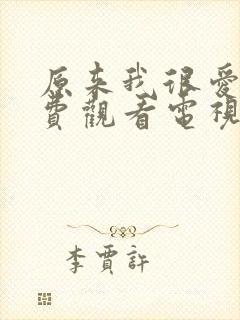 原来我很爱
费觀看電視
李賈許